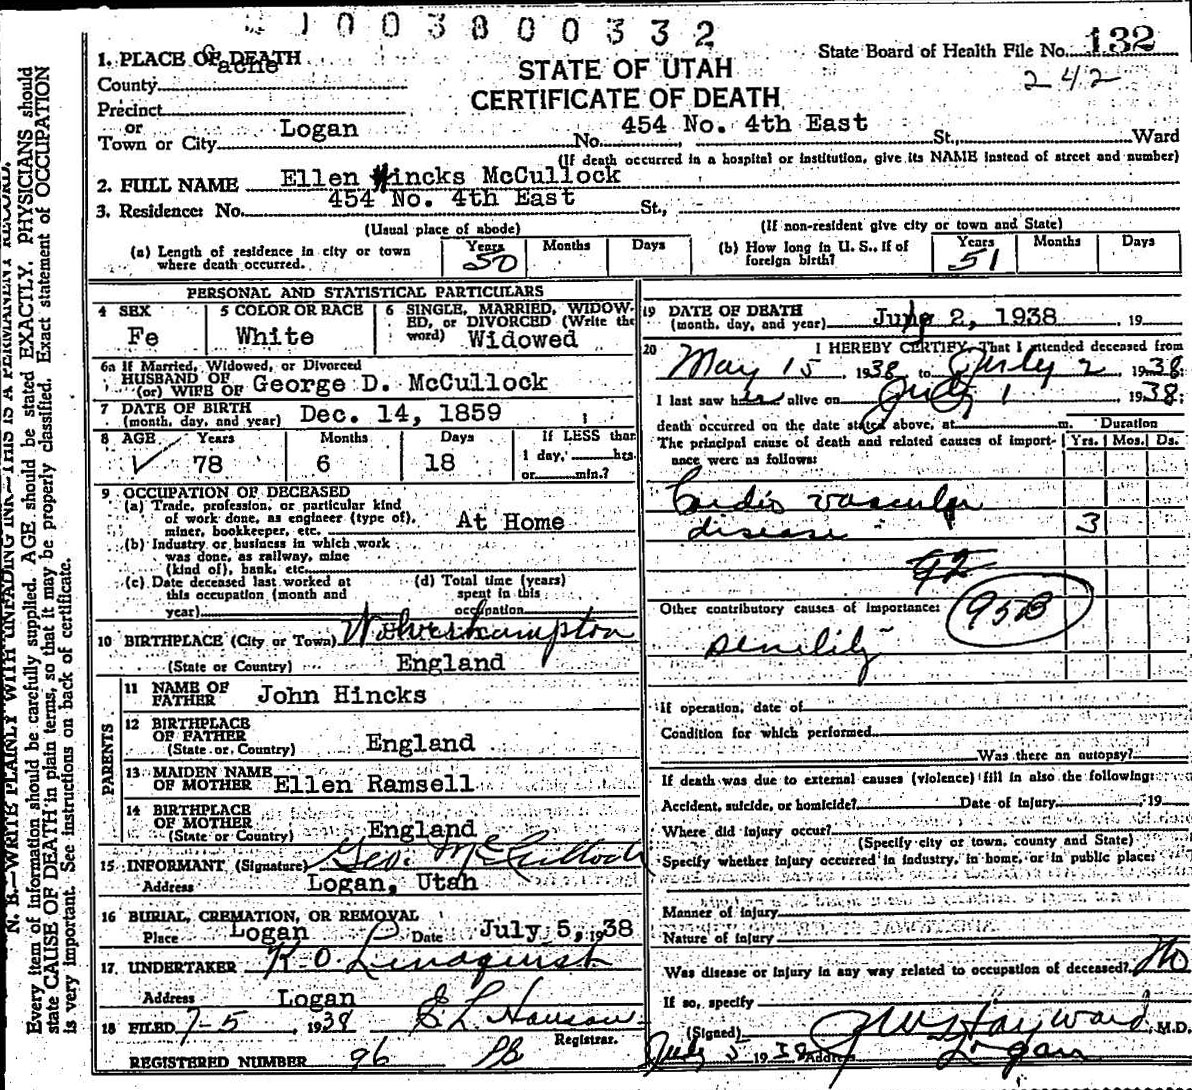 J 0 0 3 8 0 0 3 3 2
State Board of Health File No. 132
242
STATE OF UTAH
CERTIFICATE OF DEATH
1. PLACE OF DEATH
County Cache
Precinct
or
Town or City Logan No. 454 No. 4th East St., Ward
(If death occurred in a hospital or institution, give its NAME instead of street and number)
2. FULL NAME Ellen Hincks McCullock
3. Residence: No. 454 No. 4th East St.,
(Usual place of abode) (If non-resident give city or town and State)
(a) Length of residence in city or town where death occurred. Years 50 Months Days
(b) How long in U. S., if of foreign birth? Years 51 Months Days
PERSONAL AND STATISTICAL PARTICULARS
4 SEX Fe
5 COLOR OR RACE White
6 SINGLE, MARRIED, WIDOWED, or DIVORCED (Write the word) Widowed
6a If Married, Widowed, or Divorced
HUSBAND OF
(or) WIFE OF George D. McCullock
7 DATE OF BIRTH
(month, day, and year) Dec. 14, 1859
8 AGE Years Months Days If LESS than
1 day, hrs.
or min.?
78 6 18
9 OCCUPATION OF DECEASED
(a) Trade, profession, or particular kind
of work done, as engineer (type of),
miner, bookkeeper, etc. At Home
(b) Industry or business in which work
was done, as railway, mine
(kind of), bank, etc.
(c) Date deceased last worked at
this occupation (month and
year)
(d) Total time (years)
spent in this
occupation
10 BIRTHPLACE (City or Town) Wolverhampton
(State or Country) England
PARENTS
11 NAME OF FATHER John Hincks
12 BIRTHPLACE OF FATHER
(State or Country) England
13 MAIDEN NAME OF MOTHER Ellen Ramsell
14 BIRTHPLACE OF MOTHER
(State or Country) England
15 INFORMANT (Signature) Geo. McCullock
Address Logan, Utah
16 BURIAL, CREMATION, OR REMOVAL
Place Logan Date July 5, 1938
17 UNDERTAKER K. O. Lindquist
Address Logan
18 FILED 7-5, 1938 E L Hanson
Registrar.
REGISTERED NUMBER 96
19 DATE OF DEATH
(month, day, and year) July 2, 1938 , 19
20 I HEREBY CERTIFY, That I attended deceased from
May 15, 1938, to July 2 1938;
I last saw her alive on July 1 1938;
death occurred on the date stated above, at m. Duration
The principal cause of death and related causes of importance were as follows: Yrs. Mos. Ds.
Cardio vascular
disease 3
92
Other contributory causes of importance: 95B
senility
If operation, date of
Condition for which performed
Was there an autopsy?
If death was due to external causes (violence) fill in also the following:
Accident, suicide, or homicide? Date of injury , 19
Where did injury occur?
(Specify city or town, county and State)
Specify whether injury occurred in industry, in home, or in public place:
Manner of injury
Nature of injury
Was disease or injury in any way related to occupation of deceased? No
If so, specify
(Signed) Hayward, M.D.
July 5 1938 Address Logan
N. B.—WRITE PLAINLY WITH UNFADING INK—THIS IS A PERMANENT RECORD.
Every item of information should be carefully supplied. AGE should be stated EXACTLY. PHYSICIANS should
state CAUSE OF DEATH in plain terms, so that it may be properly classified. Exact statement of OCCUPATION
is very important. See instructions on back of certificate.